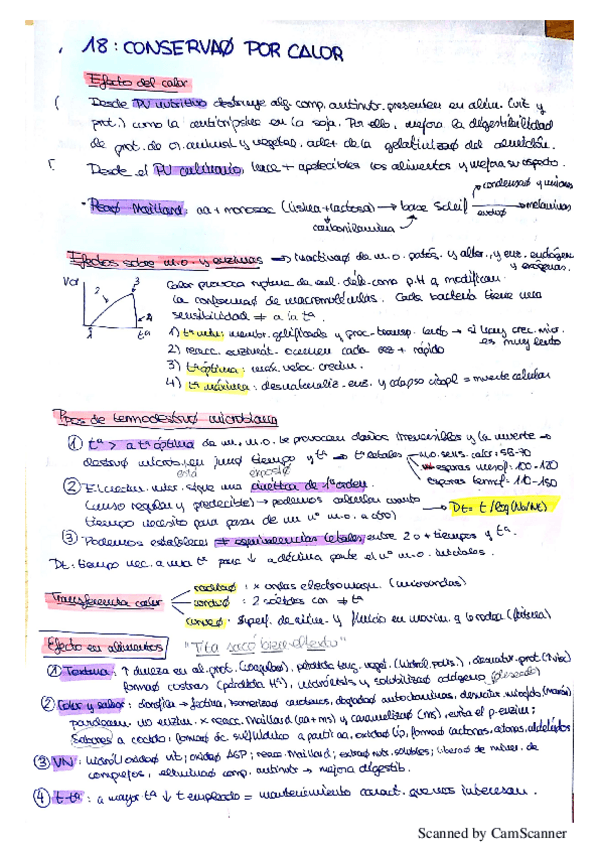 18: CONSERVAØ POR CALOR
Efecto del calor
Desde PU nutritivo destruye alg. comp. antinutr. presentes en alim. (vit y
prot.) como la antitripsina en la soja. Por ello, mejora la digestibilidad
de prot. de or. animal y vegetal, adet de la gelatinizaØ del almidón.
Desde el PU culinario, hace + apetecibles los alimentos y mejora su aspecto.
condensaØ y uniones
· ReacØ Maillard: aa + monosac (lisina + lactosa) → base Schiff → melaninas
carbonilamina
Efectos sobre m.o. y enzimas ⇒ inactivaØ de m.o. patóg. y alter., y enz. endógen
y exógenas.
Vcr
2
3
4
1
tª
Calor provoca ruptura de enl. débil como p.H q modifican
la conformaØ de macromoléculas. Cada bacteria tiene una
sensibilidad ≠ a la tª.
1) tª mín: membr. gelificada y proc. transp. lento → si hay crec. micr.
es muy lento
2) reacc. enzimát. ocurren cada vez + rápido
3) tª óptima: máx. veloc. crecim.
4) tª máxima: desnaturaliz. enz. y colapso citopl = muerte celular
Tipos de termodestrucØ microbiana
① tª > a tª óptima de m.o. le provocan daños irreversibles y la muerte →
destruØ microb. en función tiempo y tª → tª letales
m.o. sens. calor: 58-70
esporas mesof: 100-120
esporas termof: 110-150
está expostº
② El crecim. micr. sigue una cinética de 1º orden
(curso regular y predecible) → podemos calcular cuanto
tiempo necesito para pasar de un nº m.o. a otro)
→ Dt = t/log(No/Nt)
③ Podemos establecer ≠ equivalencias letales entre 2 o + tiempos y tª.
Dt: tiempo nec. a una tª para ↓ a décima parte el nº m.o. iniciales.
Transferencia calor
radiaØ: x ondas electromagn. (microondas)
conducØ: 2 sólidos con ≠ tª
convecØ: superf. de alim. y fluido en movim. q lo rodea
Efecto en alimentos
"Tita sacó bien el texto"
① Textura: ↑ dureza en al. prot. (coagulac), pérdida turg. veget. (hidról. polis.), desnatur. prot. (↑ visc)
formaØ costras (pérdida Hº), hidrólisis y solubilizaØ colágeno
② Color y sabor: clorofila → feofitina, isomerizaØ carotenos, degradaØ antocianinas, desnatur. mioglob (marrón)
pardeam. no enzim. x reacc. Maillard (aa + ms) y caramelizaØ (ms), evita el p. enzim;
Sabores a cocido: formaØ de sulfídrico a partir aa, oxidaØ líp, formaØ lactonas, cetonas, aldehídos
③ VN: hidról. oxidaØ vit; oxidaØ AGP; reacc. Maillard; extraØ nutr. solubles; liberaØ de miner. de
complejos, elimina comp. antinutr → mejora digestib.
④ t-tª: a mayor tª ↓ t empleado = mantenimiento caract. que nos interesan.
Scanned by CamScanner